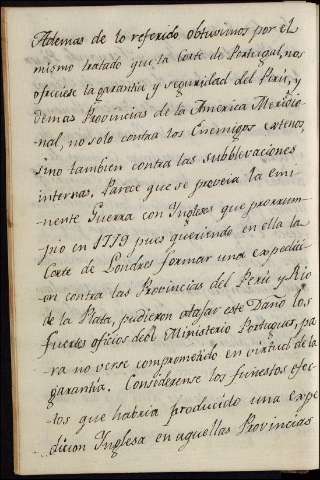 Ademas de lo referido obtuvimos por el
mismo tratado que la Corte de Portugal, nos
ofreciese la garantia y seguridad del Perù, y
demas Provincias de la America Meridio-
nal, no solo contra los Enemigos externos,
sino tambien contra las subblevaciones
internas. Parece que se proveia la emi-
-nente Guerra con Yngleses que prorrum-
pio en 1779 pues queriendo en ella la
Corte de Londres formar una expedici-
-on contra las Provincias del Perù y Rio
de la Plata, pudieron atajar este Daño los
fuertes oficios del Ministerio Portugues, pa
ra no verse comprometido en virtud de la
garantia. Considerense los funestos efec-
-tos que habria producido una expe
-dicion Ynglesa en aquellas Provincias